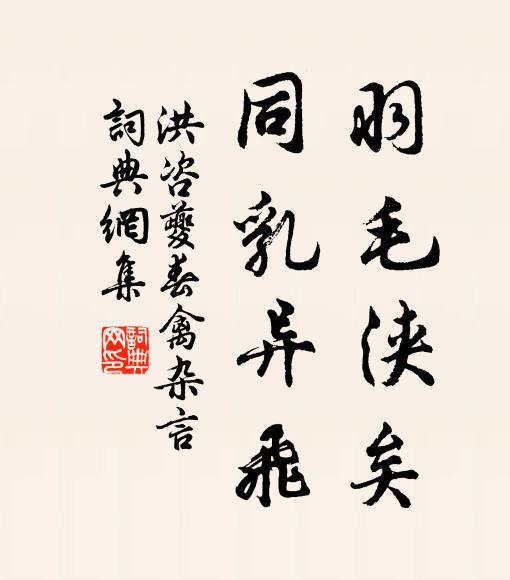 羽毛浹矣
同乳异飛
洪咨夔春禽杂言
詞典網集
詞典
网印